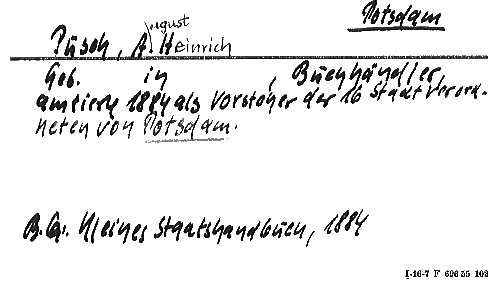 Potsdam
August
Püsch, A. Heinrich
Geb. in , Buchhändler,
amtierte 1884 als Vorsteher der 16 Stadtverord-
neten von Potsdam.
B.Qu. Kleines Staatshandbuch, 1884
I-16-7 F 696 55 102